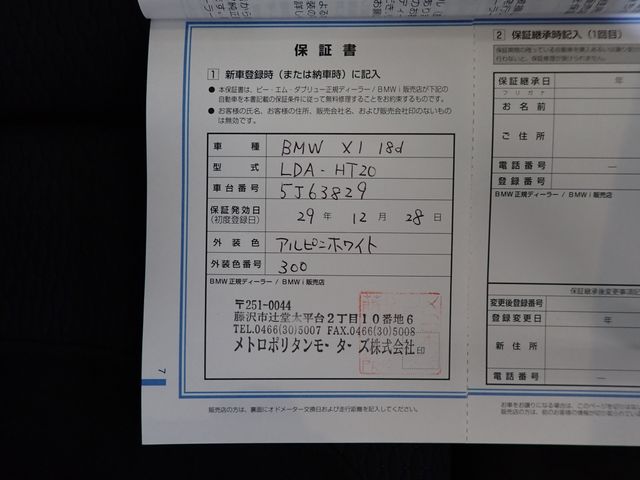 保証書
1 新車登録時（または納車時）に記入
● 本保証書は、ビー・エム・ダブリュー正規ディーラー / BMW i 販売店が下記の
自動車を本書記載の保証条件に従って無料修理することをお約束するものです。
● お客様の氏名、お客様の住所、販売会社名、および販売会社印のないもの
は無効です。
車種 BMW X1 18d
型式 LDA-HT20
車台番号 5J63829
保証発効日 29年 12月 28日
(初度登録日)
外装色 アルピンホワイト
外装色番号 300
BMW正規ディーラー / BMW i 販売店
〒251-0044
藤沢市辻堂太平台2丁目10番地6
TEL.0466(30)5007 FAX.0466(30)5008
メトロポリタンモーターズ株式会社 印
販売店の方は、裏面にオドメーター交換日および走行距離を記入してください。
7
2 保証継承時記入（1回目）
保証継承日 年
フリガナ
お名前
ご住所
電話番号 ―
登録番号
BMW正規ディーラー / BMW i 販売店
保証継承後変更事項記
変更後登録番号
登録変更日 年
新住所
電話番号 ―